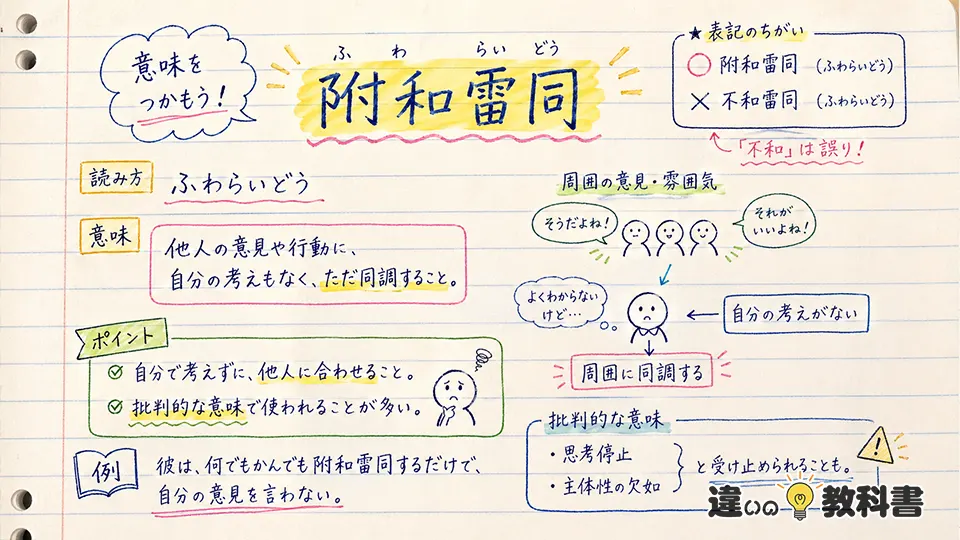 意味を
つかもう！
ふわらいどう
附和雷同
★表記のちがい
○ 附和雷同 (ふわらいどう)
× 不和雷同 (ふわらいどう)
「不和」は誤り！
読み方 ふわらいどう
意味
他人の意見や行動に、
自分の考えもなく、ただ同調すること。
ポイント
自分で考えずに、他人に合わせること。
批判的な意味で使われることが多い。
例
彼は、何でもかんでも附和雷同するだけで、
自分の意見を言わない。
周囲の意見・雰囲気
そうだよね！
それが
いいよね！
よくわからない
けど…
自分の考えがない
周囲に同調する
批判的な意味
・思考停止
・主体性の欠如
と受け止められることも。
違いの教科書